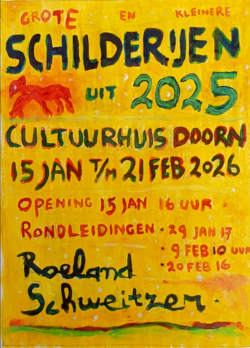 GROTE EN KLEINERE
SCHILDERIJEN
UIT 2025
CULTUURHUIS DOORN
15 JAN T/M 21 FEB 2026
OPENING 15 JAN 16 UUR
RONDLEIDINGEN · 29 JAN 17
· 9 FEB 10 UUR
· 20 FEB 16
Roeland
Schweitzer.